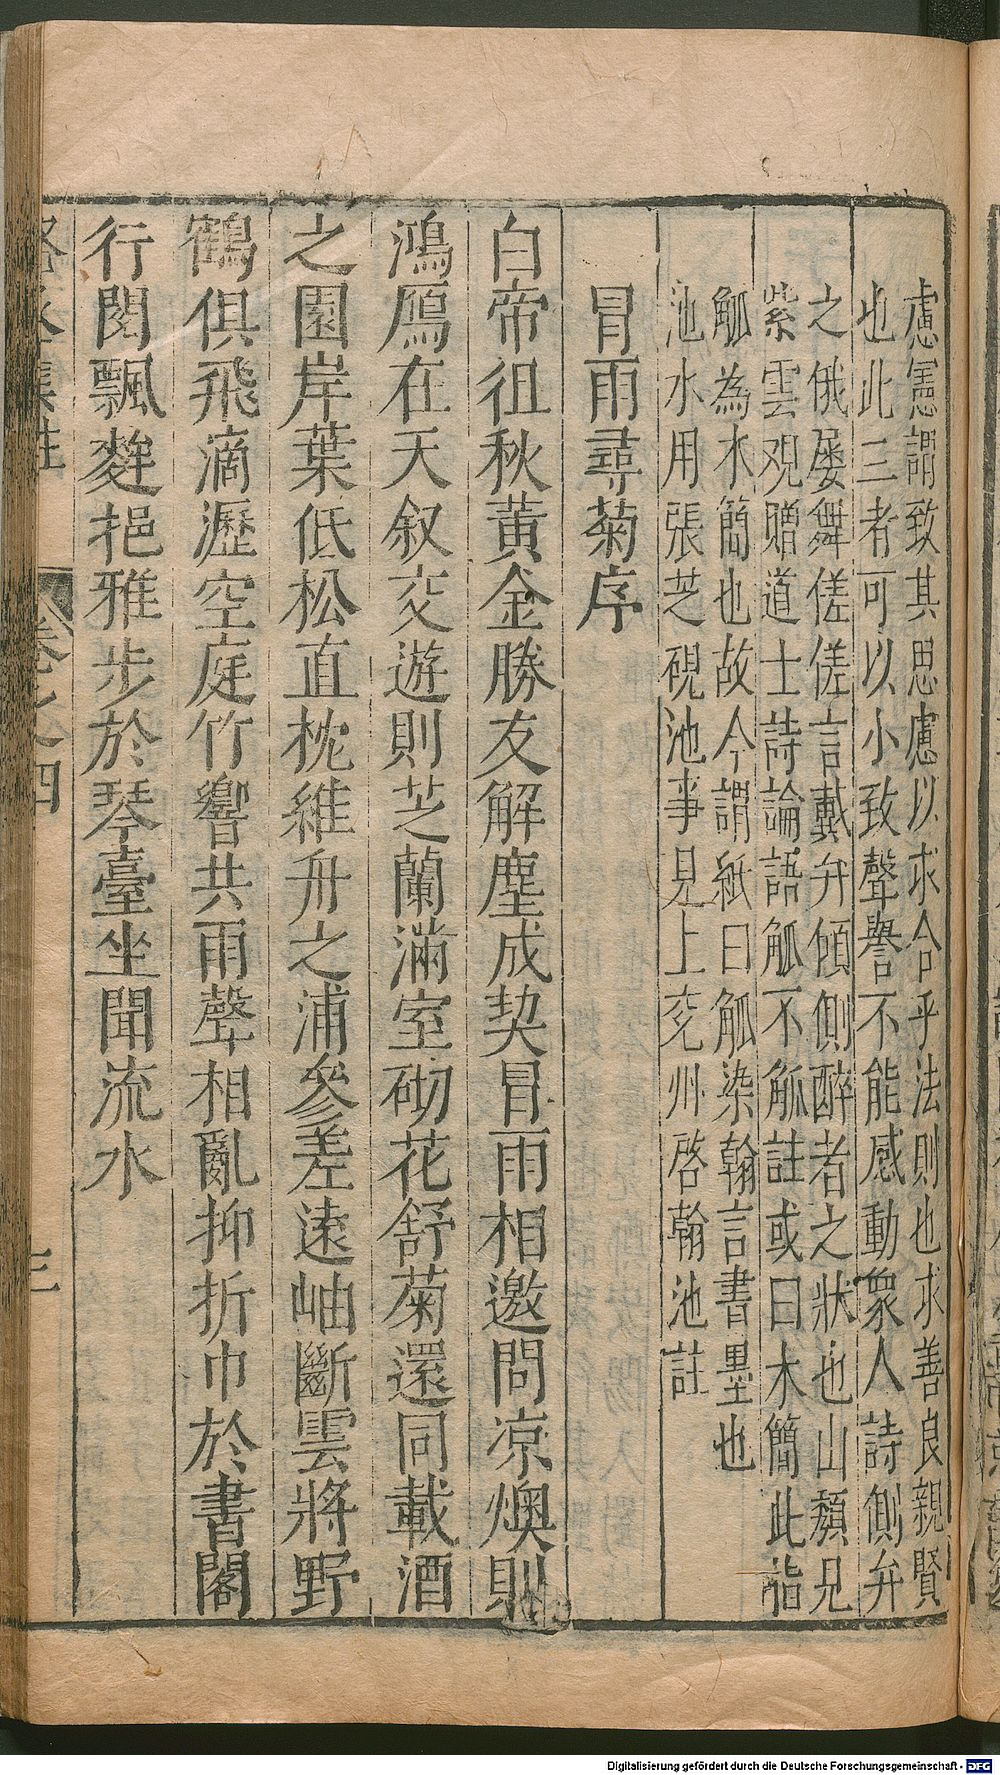 慮憲謂致其思慮以求合乎法則也求善良親賢
也此三者可以小致聲譽不能感動衆人詩側弁
之俄屡舞傞傞言戴弁傾側醉者之狀也山頽見
紫雲观贈道士詩論語觚不觚註或曰木簡此指
觚為木簡也故今謂紙曰觚染翰言書墨也
池水用張芝硯池事見上兖州啓翰池註
冒雨尋菊序
白帝徂秋黃金勝友解塵成契冒雨相邀問凉燠則
鴻鴈在天叙交遊則芝蘭滿室砌花舒菊還同載酒
之園岸葉低松直枕維舟之浦參差遠岫斷雲將野
鶴俱飛滴瀝空庭竹響共雨聲相亂抑折巾於書閣
行閱飄麰挹雅步於琴臺坐聞流水
卷之四
三
Digitalisierung gefördert durch die Deutsche Forschungsgemeinschaft - DFG